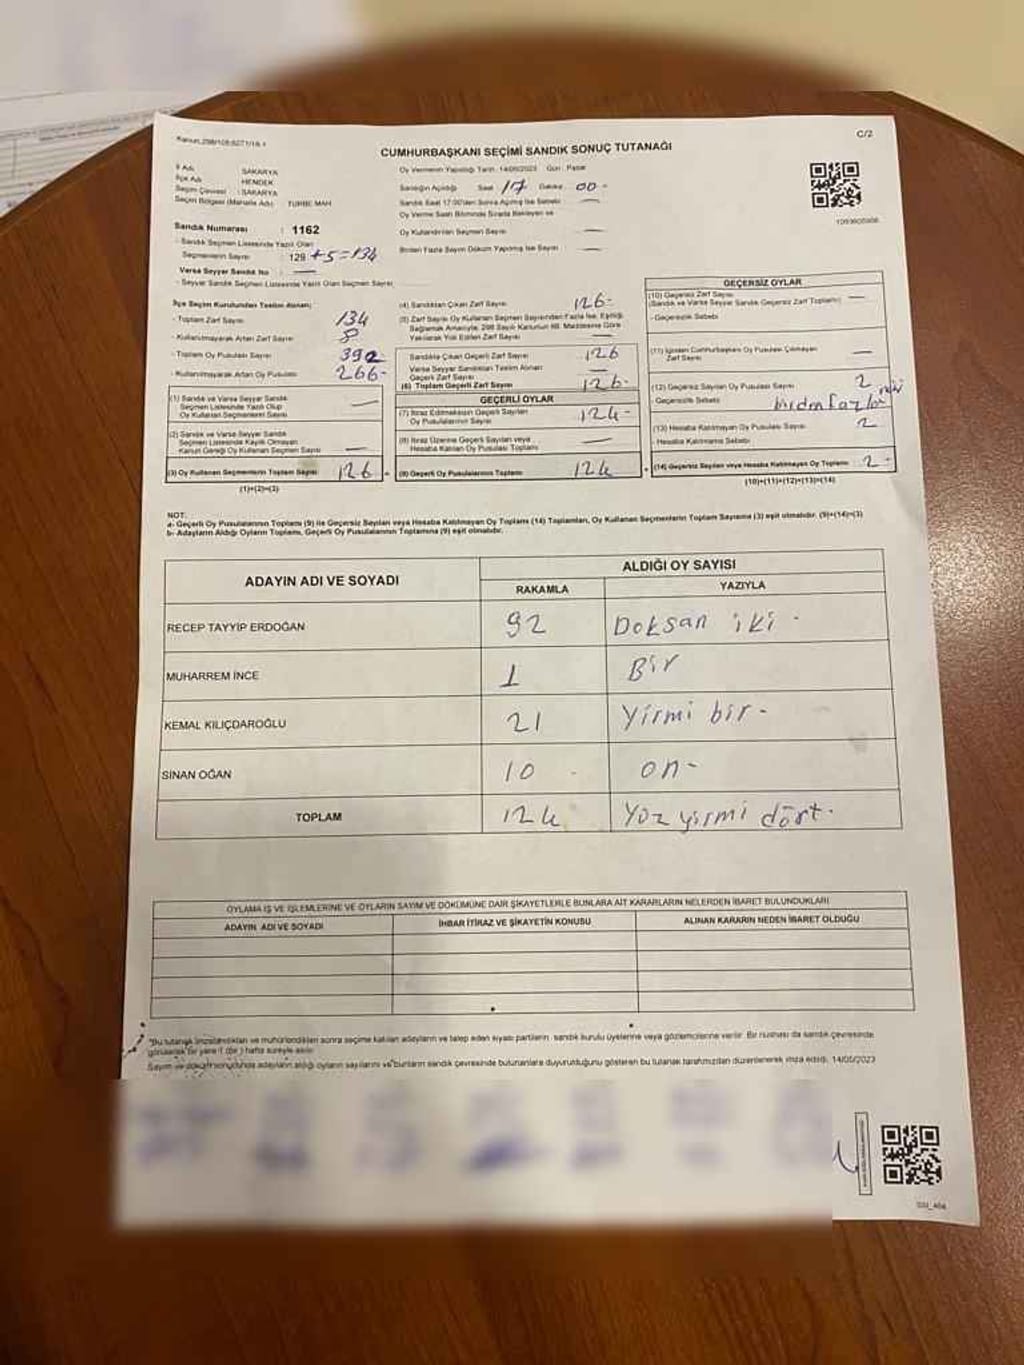 Kanun:298/105;6271/19.1
C/2
CUMHURBAŞKANI SEÇİMİ SANDIK SONUÇ TUTANAĞI
İl Adı SAKARYA
İlçe Adı HENDEK
Seçim Çevresi : SAKARYA
Seçim Bölgesi (Mahalle Adı) TURBE MAH
Sandık Numarası : 1162
- Sandık Seçmen Listesinde Yazılı Olan
Seçmenlerin Sayısı : 129 +5=134
Varsa Seyyar Sandık No : —
- Seyyar Sandık Seçmen Listesinde Yazılı Olan Seçmen Sayısı
Oy Vermenin Yapıldığı Tarih: 14/05/2023 Gün : Pazar
Sandığın Açıldığı Saat 17 Dakika 00-
Sandık Saat 17:00'den Sonra Açılmış İse Sebebi —
Oy Verme Saati Bitiminde Sırada Bekleyen ve
Oy Kullandırılan Seçmen Sayısı —
Birden Fazla Sayım Döküm Yapılmış İse Sayısı —
İlçe Seçim Kurulundan Teslim Alınan;
- Toplam Zarf Sayısı 134
- Kullanılmayarak Artan Zarf Sayısı 8
- Toplam Oy Pusulası Sayısı 392
- Kullanılmayarak Artan Oy Pusulası 266-
(1) Sandık ve Varsa Seyyar Sandık
Seçmen Listesinde Yazılı Olup
Oy Kullanan Seçmenlerin Sayısı —
(2) Sandık ve Varsa Seyyar Sandık
Seçmen Listesinde Kayıtlı Olmayan
Kanun Gereği Oy Kullanan Seçmen Sayısı —
(3) Oy Kullanan Seçmenlerin Toplam Sayısı 126
(1)+(2)=(3)
(4) Sandıktan Çıkan Zarf Sayısı 126-
(5) Zarf Sayısı Oy Kullanan Seçmen Sayısından Fazla İse, Eşitliği
Sağlamak Amacıyla, 298 Sayılı Kanunun 98. Maddesine Göre
Yakılarak Yok Edilen Zarf Sayısı —
Sandıkta Çıkan Geçerli Zarf Sayısı 126
Varsa Seyyar Sandıktan Teslim Alınan
Geçerli Zarf Sayısı —
(6) Toplam Geçerli Zarf Sayısı 126-
GEÇERLİ OYLAR
(7) İtiraz Edilmeksizin Geçerli Sayılan
Oy Pusulası Sayısı 124-
(8) İtiraz Üzerine Geçerli Sayılan veya
Hesaba Katılan Oy Pusulası Toplamı —
(9) Geçerli Oy Pusulalarının Toplamı 124
GEÇERSİZ OYLAR
(10) Geçersiz Zarf Sayısı —
(Sandık ve Varsa Seyyar Sandık Geçersiz Zarf Toplamı)
- Geçersizlik Sebebi
(11) İçinden Cumhurbaşkanı Oy Pusulası Çıkmayan
Zarf Sayısı —
(12) Geçersiz Sayılan Oy Pusulası Sayısı 2
- Geçersizlik Sebebi birden fazla
(13) Hesaba Katılmayan Oy Pusulası Sayısı 2
- Hesaba Katılmama Sebebi
(14) Geçersiz Sayılan veya Hesaba Katılmayan Oy Toplamı 2-
(10)+(11)+(12)+(13)=(14)
NOT:
a- Geçerli Oy Pusulalarının Toplamı (9) ile Geçersiz Sayılan veya Hesaba Katılmayan Oy Toplamı (14) Toplamları, Oy Kullanan Seçmenlerin Toplam Sayısına (3) eşit olmalıdır. (9)+(14)=(3)
b- Adayların Aldığı Oyların Toplamı, Geçerli Oy Pusulalarının Toplamına (9) eşit olmalıdır.
ADAYIN ADI VE SOYADI
ALDIĞI OY SAYISI
RAKAMLA YAZIYLA
RECEP TAYYİP ERDOĞAN 92 Doksan iki -
MUHARREM İNCE 1 Bir
KEMAL KILIÇDAROĞLU 21 Yirmi bir-
SİNAN OĞAN 10 - on-
TOPLAM 124 Yüz yirmi dört-
OYLAMA İŞ VE İŞLEMLERİNE VE OYLARIN SAYIM VE DÖKÜMÜNE DAİR ŞİKAYETLERLE BUNLARA AİT KARARLARIN NELERDEN İBARET BULUNDUKLARI
ADAYIN ADI VE SOYADI İHBAR İTİRAZ VE ŞİKAYETİN KONUSU ALINAN KARARIN NEDEN İBARET OLDUĞU
"Bu tutanak imzalandıktan ve mühürlendikten sonra seçime katılan adayların ve talep eden siyasi partilerin, sandık kurulu üyelerine veya gözlemcilerine verilir. Bir nüshası da sandık çevresinde
görülecek bir yere 1 (bir) hafta süreyle asılır.
Sayım ve döküm sonucunda adayların aldığı oyların sayılarını ve bunların sandık çevresinde bulunanlara duyurulduğunu gösteren bu tutanak tarafımızdan düzenlenerek imza edildi. 14/05/2023